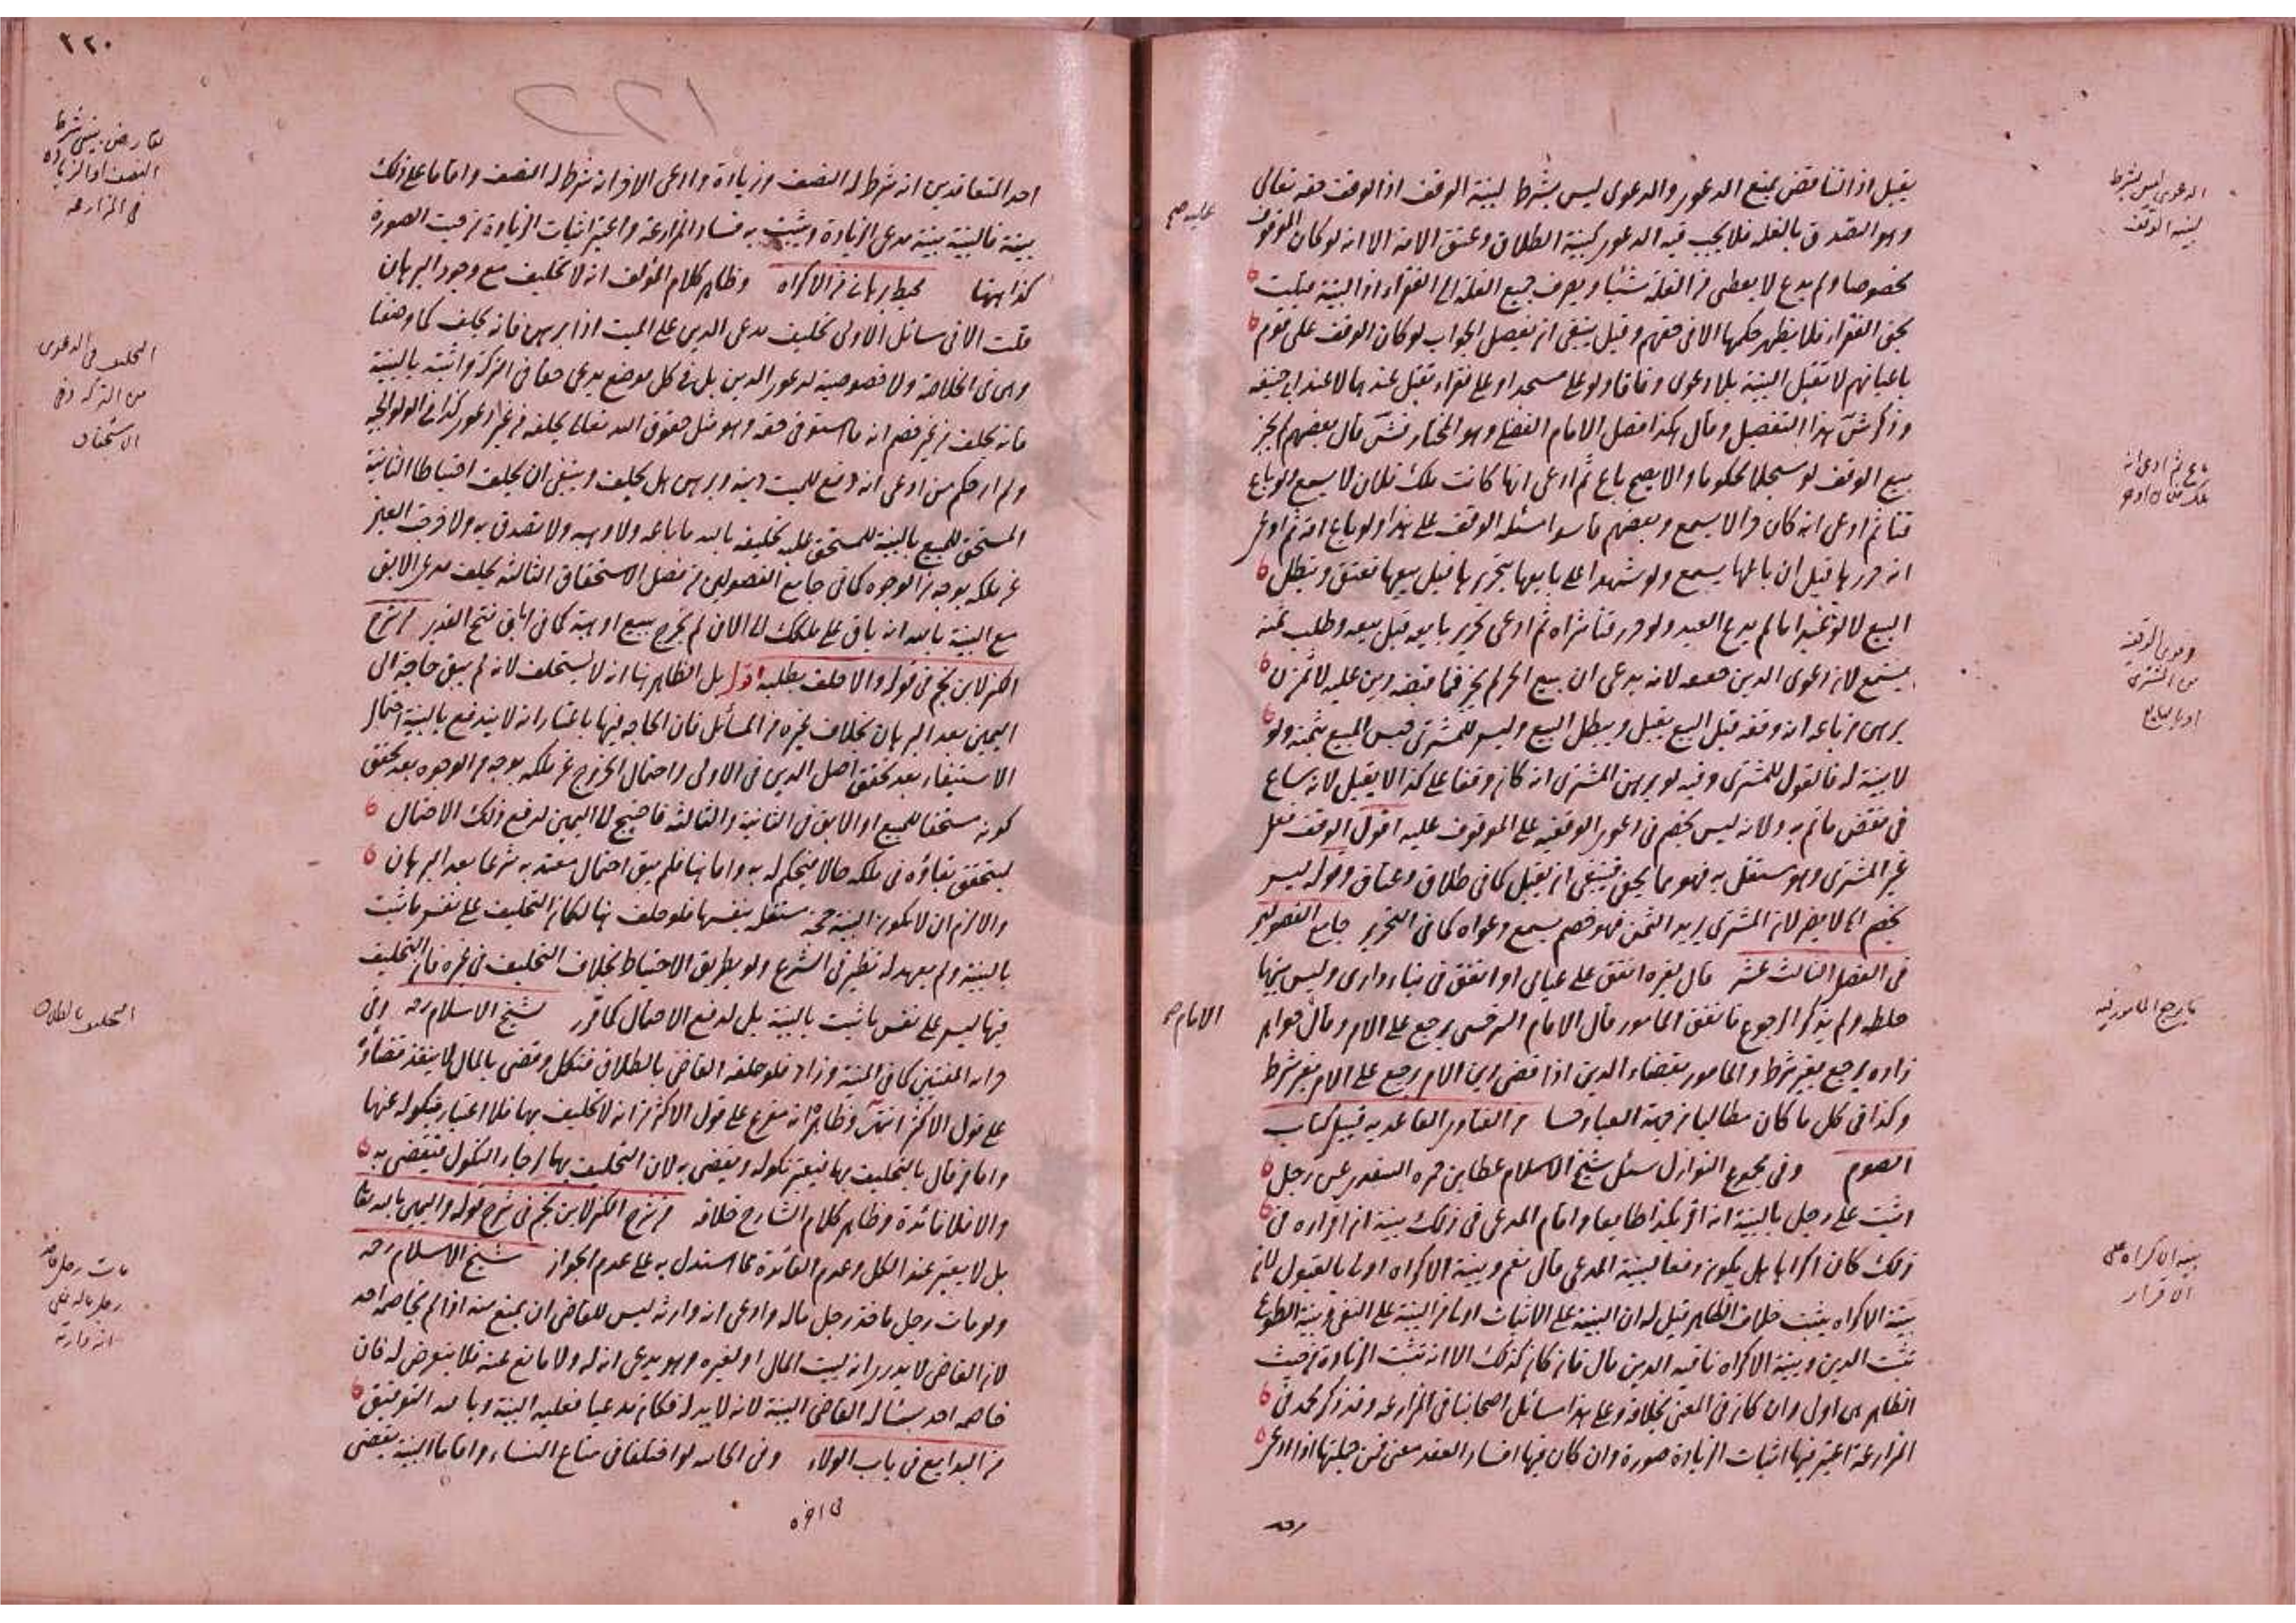 يقبل اذ التناقض يمنع الدعوى والدعوى ليس بشرط لبينة الوقف اذ الوقف حقه تعالى
وهو التصدق بالغلة فلا يجب فيه الدعوى كبينة الطلاق وعتق الامة الا انه لو كان الموقوف عليه
مخصوصا ولم يدع لا يعطى من الغلة شيئا ويصرف جميع الغلة الى الفقراء اذ البينة قبلت
بحق الفقراء فلا يظهر حكمها الا في حقهم وقيل ينبغي ان يفصل الجواب لو كان الوقف على قوم
باعيانهم لا تقبل البينة بلا دعوى وفاقا ولو على مسجد او على فقراء تقبل عندهما لا عند ابي حنيفة
وذكر شس هذا التفصيل وقال هكذا فصل الامام الفضلي وهو المختار فش قال بعضهم لم يجز
بيع الوقف لو مسجلا محكوما والا يصح باع ثم ادعى انها كانت ملك فلان لا يسمع ولو باع
قنا ثم ادعى انه كان حرا لا يسمع وبعضهم قاسوا مسئلة الوقف على هذا ولو باع امة ثم ادعى
انه حررها قبل ان باعها يسمع ولو شهدوا على بايعها بتحريرها قبل بيعها تعتق ويبطل
البيع لا لو قنا اما لم يدع العبد ولو حرر قنا شراه ثم ادعى تحرير بايعه قبل بيعه وطلب ثمنه
يستمع لانه دعوى الدين حقه لانه يدعي ان بيع الحر لم يجز فما قبضه دين عليه لا ثمن
برهن من باعه انه وقفه قبل البيع يقبل ويبطل البيع وليس للمشتري حبس المبيع بثمنه ولو
لا بينة له فالقول للمشتري وفيه لو برهن المشتري انه كان وقفا على كذا لا يقبل لانه ساع
في نقض ما تم به ولانه ليس بخصم في دعوى الوقفية على الموقوف عليه اقول الوقف فعل
غير المشتري وهو مستقل به فهو مما يخفى فينبغي ان يقبل كما في طلاق وعتاق وقوله ليس
بخصم الخ لا يضر لان المشتري يريد الثمن فهو خصم يسمع دعواه كما في التحرير جامع الفصولين
في الفصل الثالث عشر قال لغيره انفق على عيالي او انفق في بناء داري وليس بينهما
خلطة ولم يذكر الرجوع فانفق المامور قال الامام السرخسي يرجع على الامر وقال الامام خواهر
زاده يرجع بغير شرط والمامور بقضاء الدين اذا قضى دين الامر يرجع على الامر بغير شرط
وكذا في كل ما كان مطالبا من جهة العباد حسا من الفتاوى القاعدية قبيل كتاب
الصوم وفي مجموع النوازل سئل شيخ الاسلام عطا بن حمزة السغدي عن رجل
اثبت على رجل بالبينة انه اقر بكذا طايعا واقام المدعى في ذلك بينة ان اقراره في
ذلك كان اكراها هل يكون دفعا لبينة المدعي قال نعم وبينة الاكراه اولى بالقبول لان
بينة الاكراه يثبت خلاف الظاهر قيل له ان البينة على الاثبات اولى من البينة على النفي وبينة الطوع
تثبت الدين وبينة الاكراه نافية الدين قال فان كان كذلك الا انه تثبت الزيادة من حيث
الظاهر هي اولى وان كان في المعنى بخلافه وعلى هذا مسائل اصحابنا في المزارعة وقد ذكر محمد في
المزارعة اعتبر فيها اثبات الزيادة صورة وان كان فيها افساد العقد معنى فمن جملتها اذا ادعى
الدعوى ليس بشرط
لبينة الوقف
باع ثم ادعى انه
دعوى الوقفية
من المشتري
بينة الاكراه على
الاقرار
٣٢٠
احد المتعاقدين انه شرط له النصف وزيادة وادعى الاخر انه شرط له النصف واقاما على ذلك
بينة فالبينة بينة مدعي الزيادة ويثبت به فساد المزارعة واعتبر اثبات الزيادة من حيث الصورة
كذا ههنا محيط برهاني من الاكراه وظاهر كلام المؤلف انه لا تحليف مع وجود البرهان
قلت الا في مسائل الاولى تحليف مدعي الدين على الميت اذا برهن فانه يحلف كما وصفنا
وهي في الخلاصة ولا خصوصية لدعوى الدين بل في كل موضع يدعي حقا في التركة واثبته بالبينة
فانه يحلف من غير خصم انه ما استوفى حقه وهو مثل حقوق الله تعالى يحلفه من غير دعوى كذا في الولوالجية
ولم ار حكم من ادعى انه دفع للميت دينه وبرهن هل يحلف وينبغي ان يحلف احتياطا الثانية
المستحق للمبيع بالبينة للمستحق عليه تحليفه بالله ما باعه ولا وهبه ولا تصدق به ولا خرجت العين
عن ملكه بوجه من الوجوه كما في جامع الفصولين من فصل الاستحقاق الثالثة يحلف مدعي الابق
مع البينة بالله انه باق على ملكك الى الان لم يخرج ببيع او هبة كما في اباق فتح القدير من شرح
الكنز لابن نجيم في قوله والا حلف بطلبه اقول بل الظاهر هنا انه لا يستحلف لانه لم يبق حاجة الى
اليمين بعد البرهان بخلاف غيره من المسائل فان الحاجة فيها باعتبار انه لا يندفع بالبينة احتمال
الاستيفاء بعد تحقق اصل الدين في الاولى واحتمال الخروج عن ملكه بوجه من الوجوه بعد تحقق
كونه مستحقا للمبيع او الابق في الثانية والثالثة فاحتيج الى اليمين لدفع ذلك الاحتمال
ليتحقق بقاؤه في ملكه حالا فيحكم له به واما هنا فلم يبق احتمال معتد به شرعا بعد البرهان
والا لزم ان لا يكون البينة حجة مستقلة بنفسها فلو حلف هنا لكان التحليف على نفس ما ثبت
بالبينة ولم يعهد له نظير في الشرع ولو بطريق الاحتياط بخلاف التحليف في غيره فان التحليف
فيها ليس على نفس ما ثبت بالبينة بل لدفع الاحتمال كما قرر شيخ الاسلام رحمه وفي
خزانة المفتين كما في المنية وزاد فلو حلفه القاضي بالطلاق فنكل وقضى بالمال لا ينفذ قضاؤه
على قول الاكثر انتهى وظاهره انه مفرع على قول الاكثر من انه لا تحليف بها فلا اعتبار بنكوله عنها
واما من قال بالتحليف بها فيعتبر نكوله ويقضي به لان التحليف بها لرجاء النكول فيقضى به
والا فلا فائدة وظاهر كلام الشارح خلافه من شرح الكنز لابن نجيم في شرح قوله واليمين بالله تعالى
بل لا يعتبر عند الكل وعدم الفائدة مما استدل به على عدم الجواز شيخ الاسلام رحمه
ولو مات رجل فاخذ رجل ماله وادعى انه وارثه ليس للقاضي ان يمنع منه اذا لم يخاصمه احد
لان القاضي لا يدري انه لبيت المال او لغيره وهو يدعي انه له ولا مانع عنه فلا يتعرض له فان
خاصمه احد يسأله القاضي البينة لانه لا يد له فكان مدعيا فعليه البينة وبالله التوفيق
من البدايع في باب الولاء وفي الخانية لو اختلفا في متاع النساء واقاما البينة يقضى
تعارض بينتي شرط
النصف او الزيادة
في المزارعة
التحليف في الدعوى
من التركة وفي
الاستحقاق
التحليف بالطلاق
مات رجل فاخذ
رجل ماله فادعى
انه وارثه